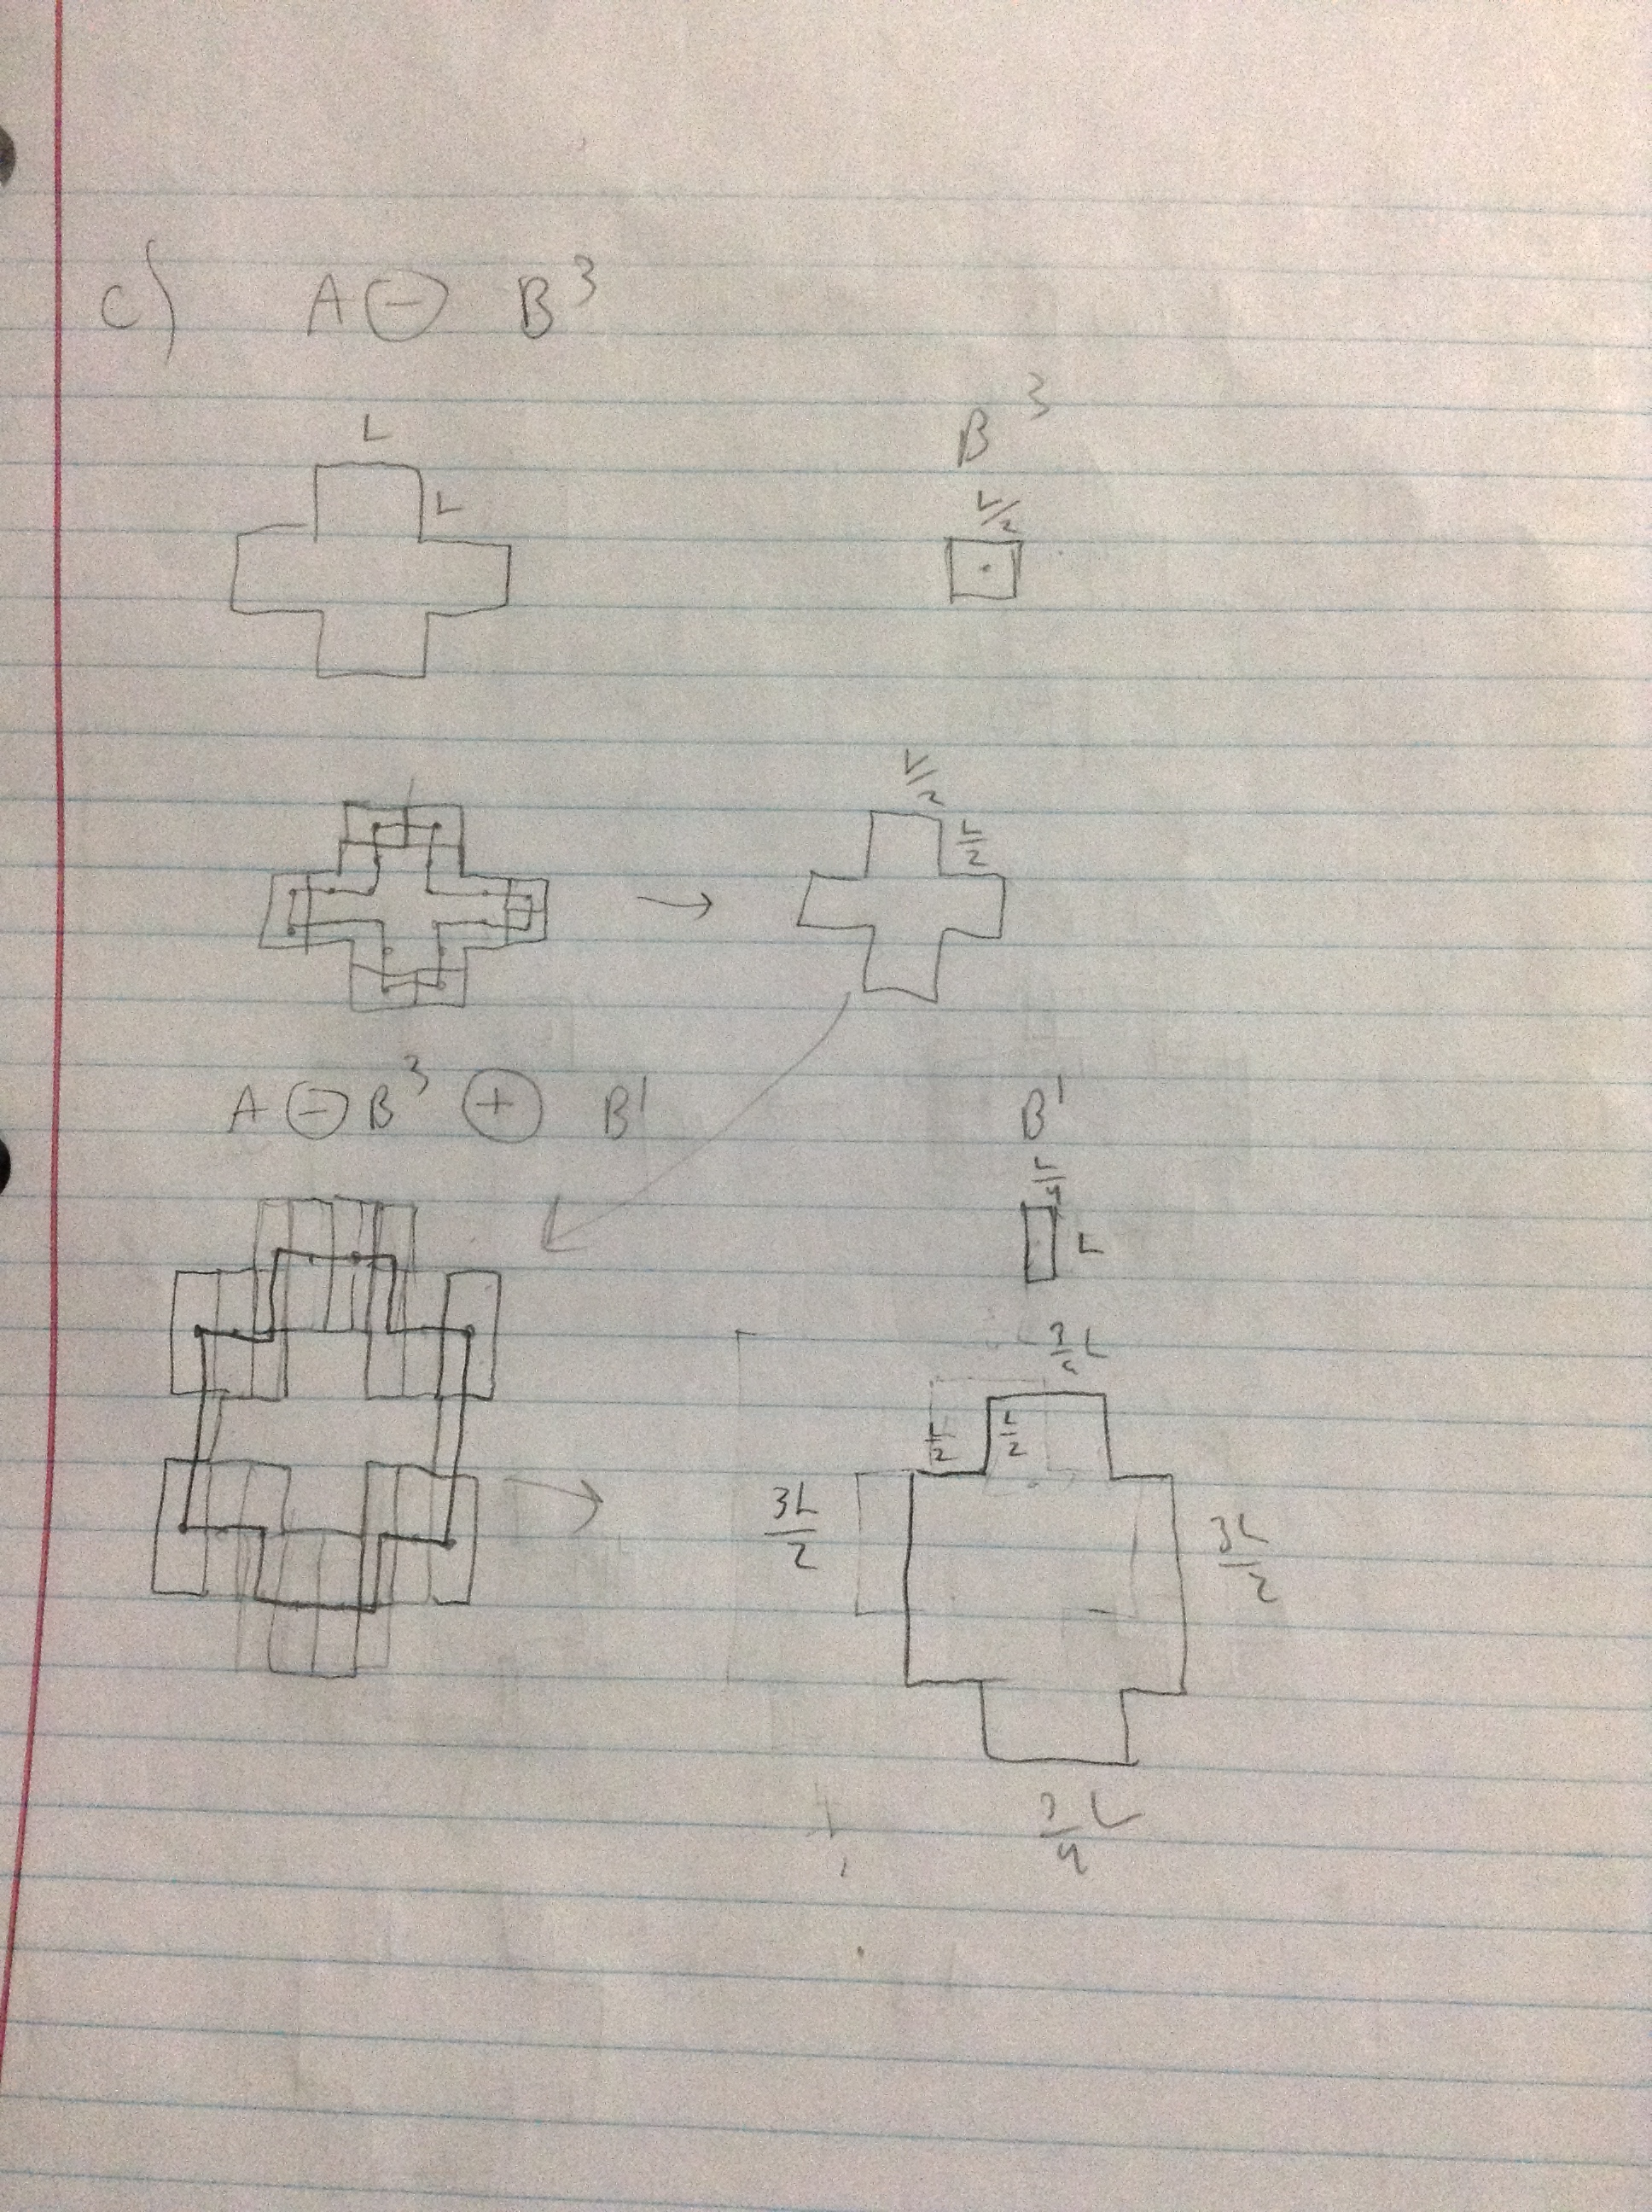 c) A ⊖ B³
L
L
B³
L/2
L/2
L/2
A ⊖ B³ ⊕ B¹
B¹
L/4
L
3/4 L
L/2
L/2
3L/2
3L/2
3/4 L